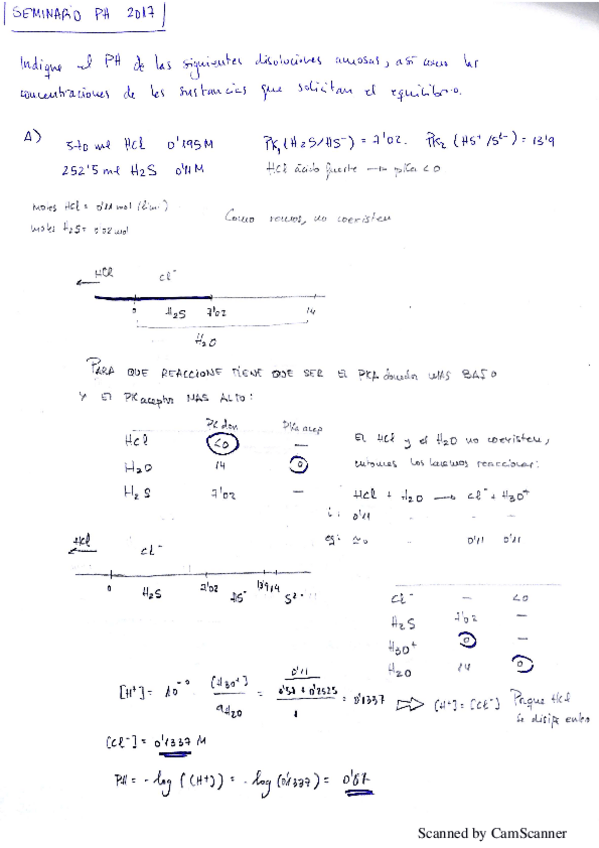 SEMINARIO PH 2017
Indique el PH de las siguientes disoluciones acuosas, así como las
concentraciones de las sustancias que solicitan el equilibrio.
A)
570 ml HCl 0'195M PK₁(H₂S/HS⁻) = 7'02. PK₂ (HS⁻/S²⁻) = 13'9
252'5 ml H₂S 0'11M HCl ácido fuerte → pKa <0
moles HCl = 0'11 mol (lim.)
moles H₂S = 0'02 mol
Como vemos, no coexisten
HCl Cl⁻
0 H₂S 7'02 14
H₂O
PARA QUE REACCIONE TIENE QUE SER EL PKA donador MAS BAJO
Y EL PK aceptor MAS ALTO:
PK don PKa acep
HCl <0 —
H₂O 14 0
H₂S 7'02 —
El HCl y el H₂O no coexisten,
entonces los hacemos reaccionar:
HCl + H₂O → Cl⁻ + H₃O⁺
i: 0'11 - - -
eq: ≃0 - 0'11 0'11
HCl Cl⁻
0 H₂S 7'02 HS⁻ 13'9 14 S²⁻
Cl⁻ — <0
H₂S 7'02 —
H₃O⁺ 0 —
H₂O 14 0
[H⁺] = 10⁻⁰ [H₃O⁺] / aH₂O = 0'11 / 0'57 + 0'2525 / 1 = 0'1337 ⇒ [H⁺] = [Cl⁻] Porque HCl
se disipa entero
[Cl⁻] = 0'1337 M
PH = - log ([H+]) = - log (0'1337) = 0'87
Scanned by CamScanner